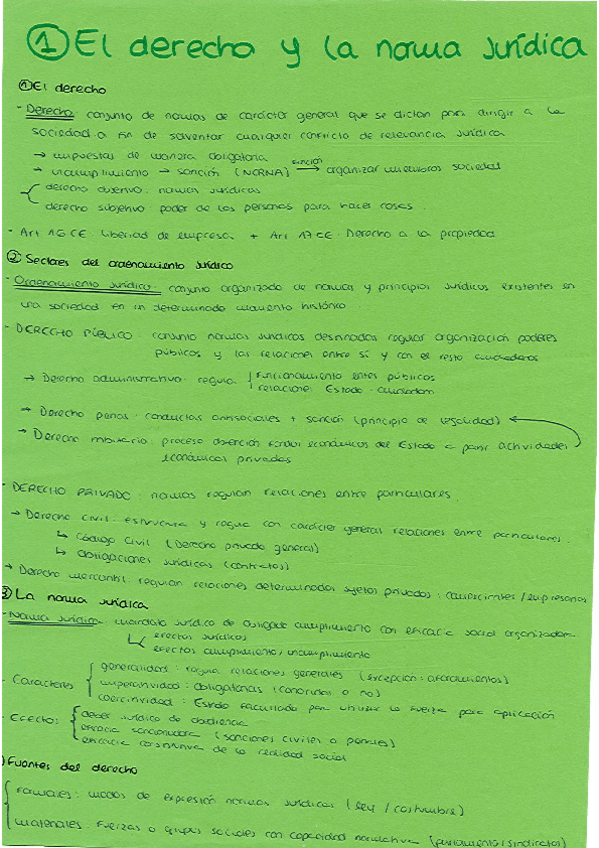 ① El derecho y la norma jurídica
① El derecho
- Derecho: conjunto de normas de carácter general que se dictan para dirigir a la
sociedad a fin de solventar cualquier conflicto de relevancia jurídica
→ impuestas de manera obligatoria
→ incumplimiento → sanción (NORMA) función → organizar miembros sociedad
derecho objetivo: normas jurídicas
derecho subjetivo: poder de las personas para hacer cosas
- Art 16 CE: Libertad de empresa + Art 17 CE: Derecho a la propiedad
② Sectores del ordenamiento jurídico
- Ordenamiento jurídico: conjunto organizado de normas y principios jurídicos existentes en
una sociedad en un determinado momento histórico
- DERECHO PÚBLICO: conjunto normas jurídicas destinadas regular organización poderes
públicos y las relaciones entre sí y con el resto ciudadanos
→ Derecho administrativo: regula funcionamiento entes públicos
relaciones Estado - ciudadano
→ Derecho penal: conductas antisociales + sanción (principio de legalidad)
→ Derecho tributario: proceso obtención fondos económicos del Estado a partir actividades
económicas privadas
- DERECHO PRIVADO: normas regulan relaciones entre particulares
→ Derecho civil: estructura y regula con carácter general relaciones entre particulares
↳ Código Civil (Derecho privado general)
↳ Obligaciones jurídicas (contratos)
→ Derecho mercantil: regulan relaciones determinados sujetos privados: comerciantes / empresarios
③ La norma jurídica
- Norma jurídica: mandato jurídico de obligado cumplimiento con eficacia social organizadora
efectos jurídicos
efectos cumplimiento, incumplimiento
- Caracteres generalidad: regula relaciones generales (excepción: aforamientos)
imperatividad: obligatorias (conocidas o no)
coercitividad: Estado facultado para utilizar la fuerza para aplicación
- Efectos: deber jurídico de obediencia
eficacia sancionadora (sanciones civiles o penales)
eficacia constitutiva de la realidad social
) Fuentes del derecho
formales: modos de expresión normas jurídicas (ley / costumbre)
materiales: fuerzas o grupos sociales con capacidad normativa (parlamento / sindicatos)